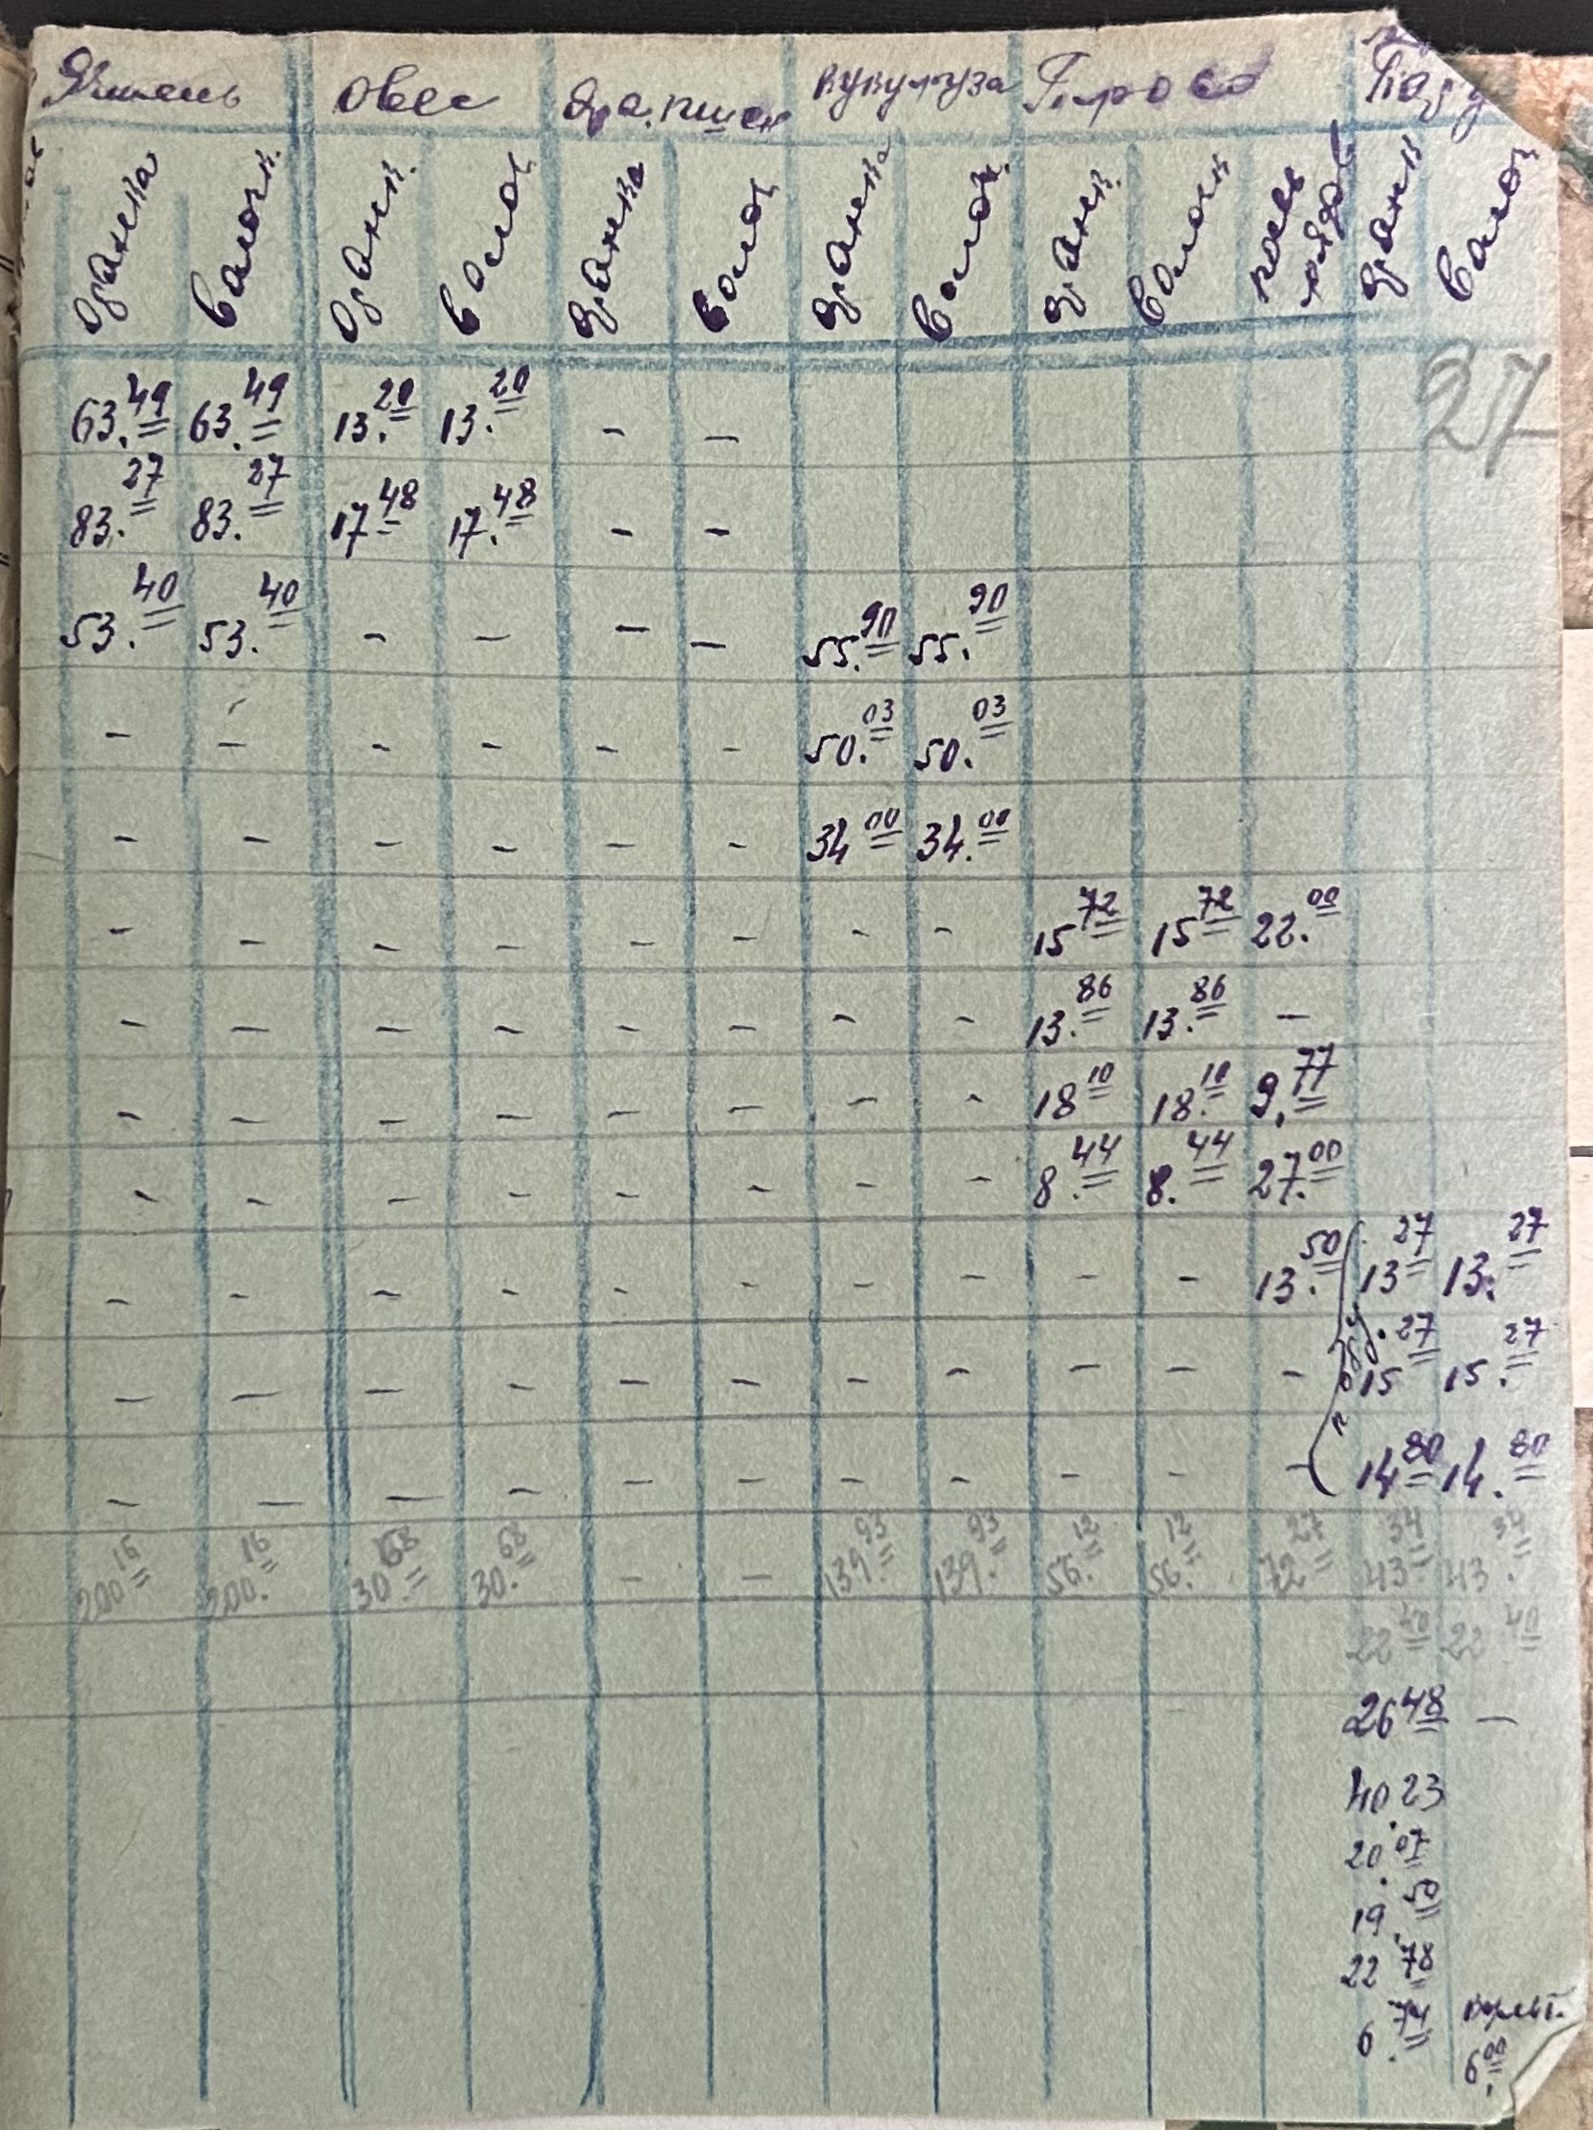 Ячмень овес яр. пшен кукуруза Просо Подсу
оранка Волоч. оранк. волоч оранка волоч оранка Волоч. оранк. Волочк посев рядов оранк Волоч
27
63.49 63.49 13.20 13.20 - -
83.27 83.27 17 48 17.48 - -
53.40 53.40 - - - - 55.90 55.90
- - - - - - 50.03 50.03
- - - - - - 34 00 34.00
- - - - - - - - 15 72 15 72 22.00
- - - - - - - - 13.86 13.86 -
- - - - - - - - 18 10 18.10 9.77
- - - - - - - - 8.44 8.44 27.00
- - - - - - - - - - 13.50 13 27 13.27
- - - - - - - - - - - 15 27 15.27
- - - - - - - - - - - 14 80 14.80
200 16 200.16 30 68 30.68 - - 139.93 139.93 56.12 56.12 72 27 43 34 43.34
22 40 22 40
26 48 -
40.23
20.07
19.50
22 78
6.74
6.00